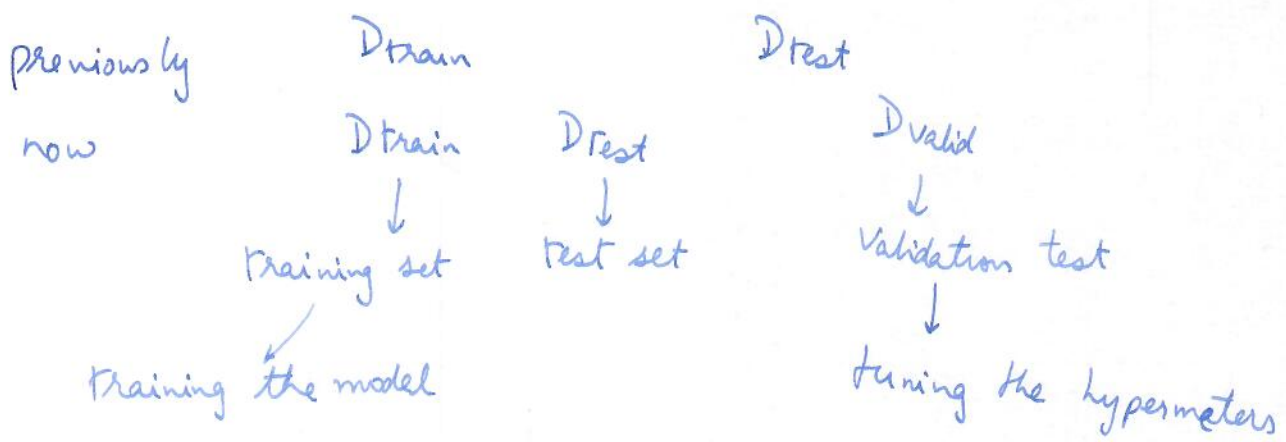 previously Dtrain Dtest
now Dtrain Dtest Dvalid
training set test set validation test
training the model tuning the hypermeters